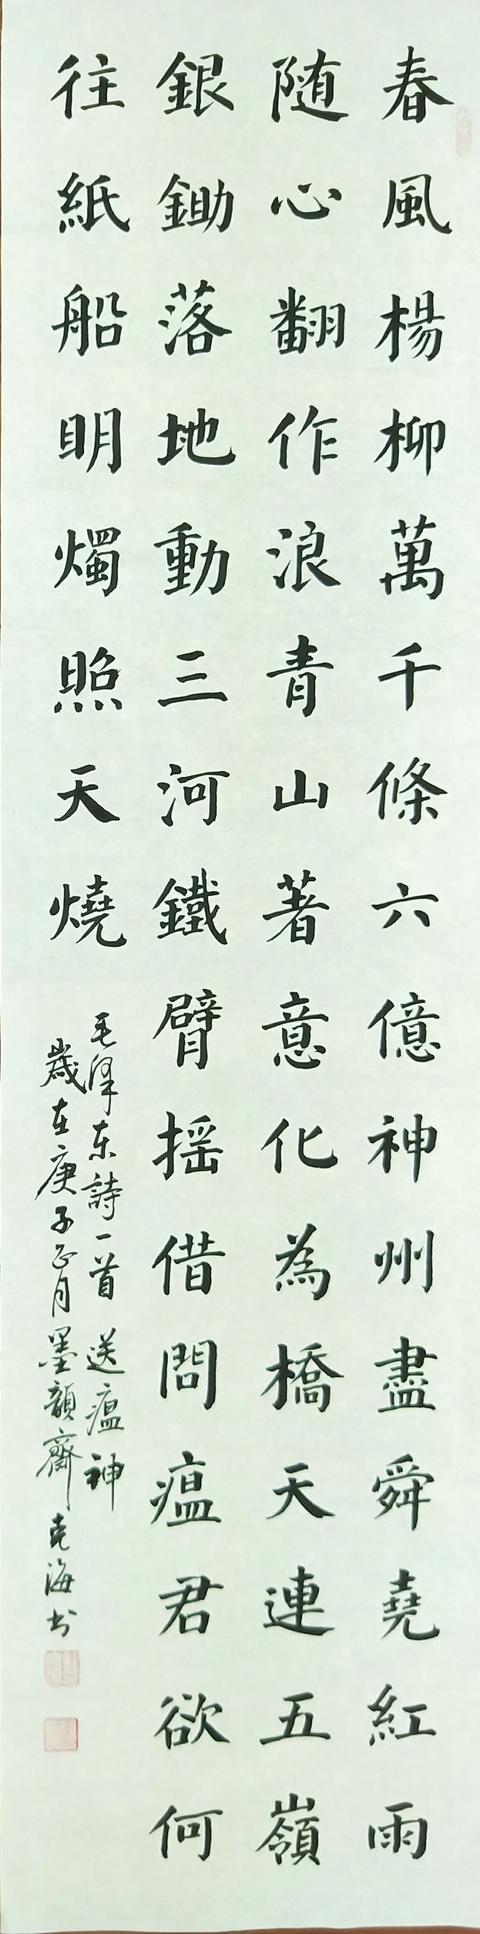 春風楊柳萬千條六億神州盡舜堯紅雨
随心翻作浪青山著意化為橋天連五嶺
銀鋤落地動三河鐵臂摇借問瘟君欲何
往紙船明燭照天燒
毛泽东詩一首 送瘟神
歲在庚子正月墨韻齋克海书